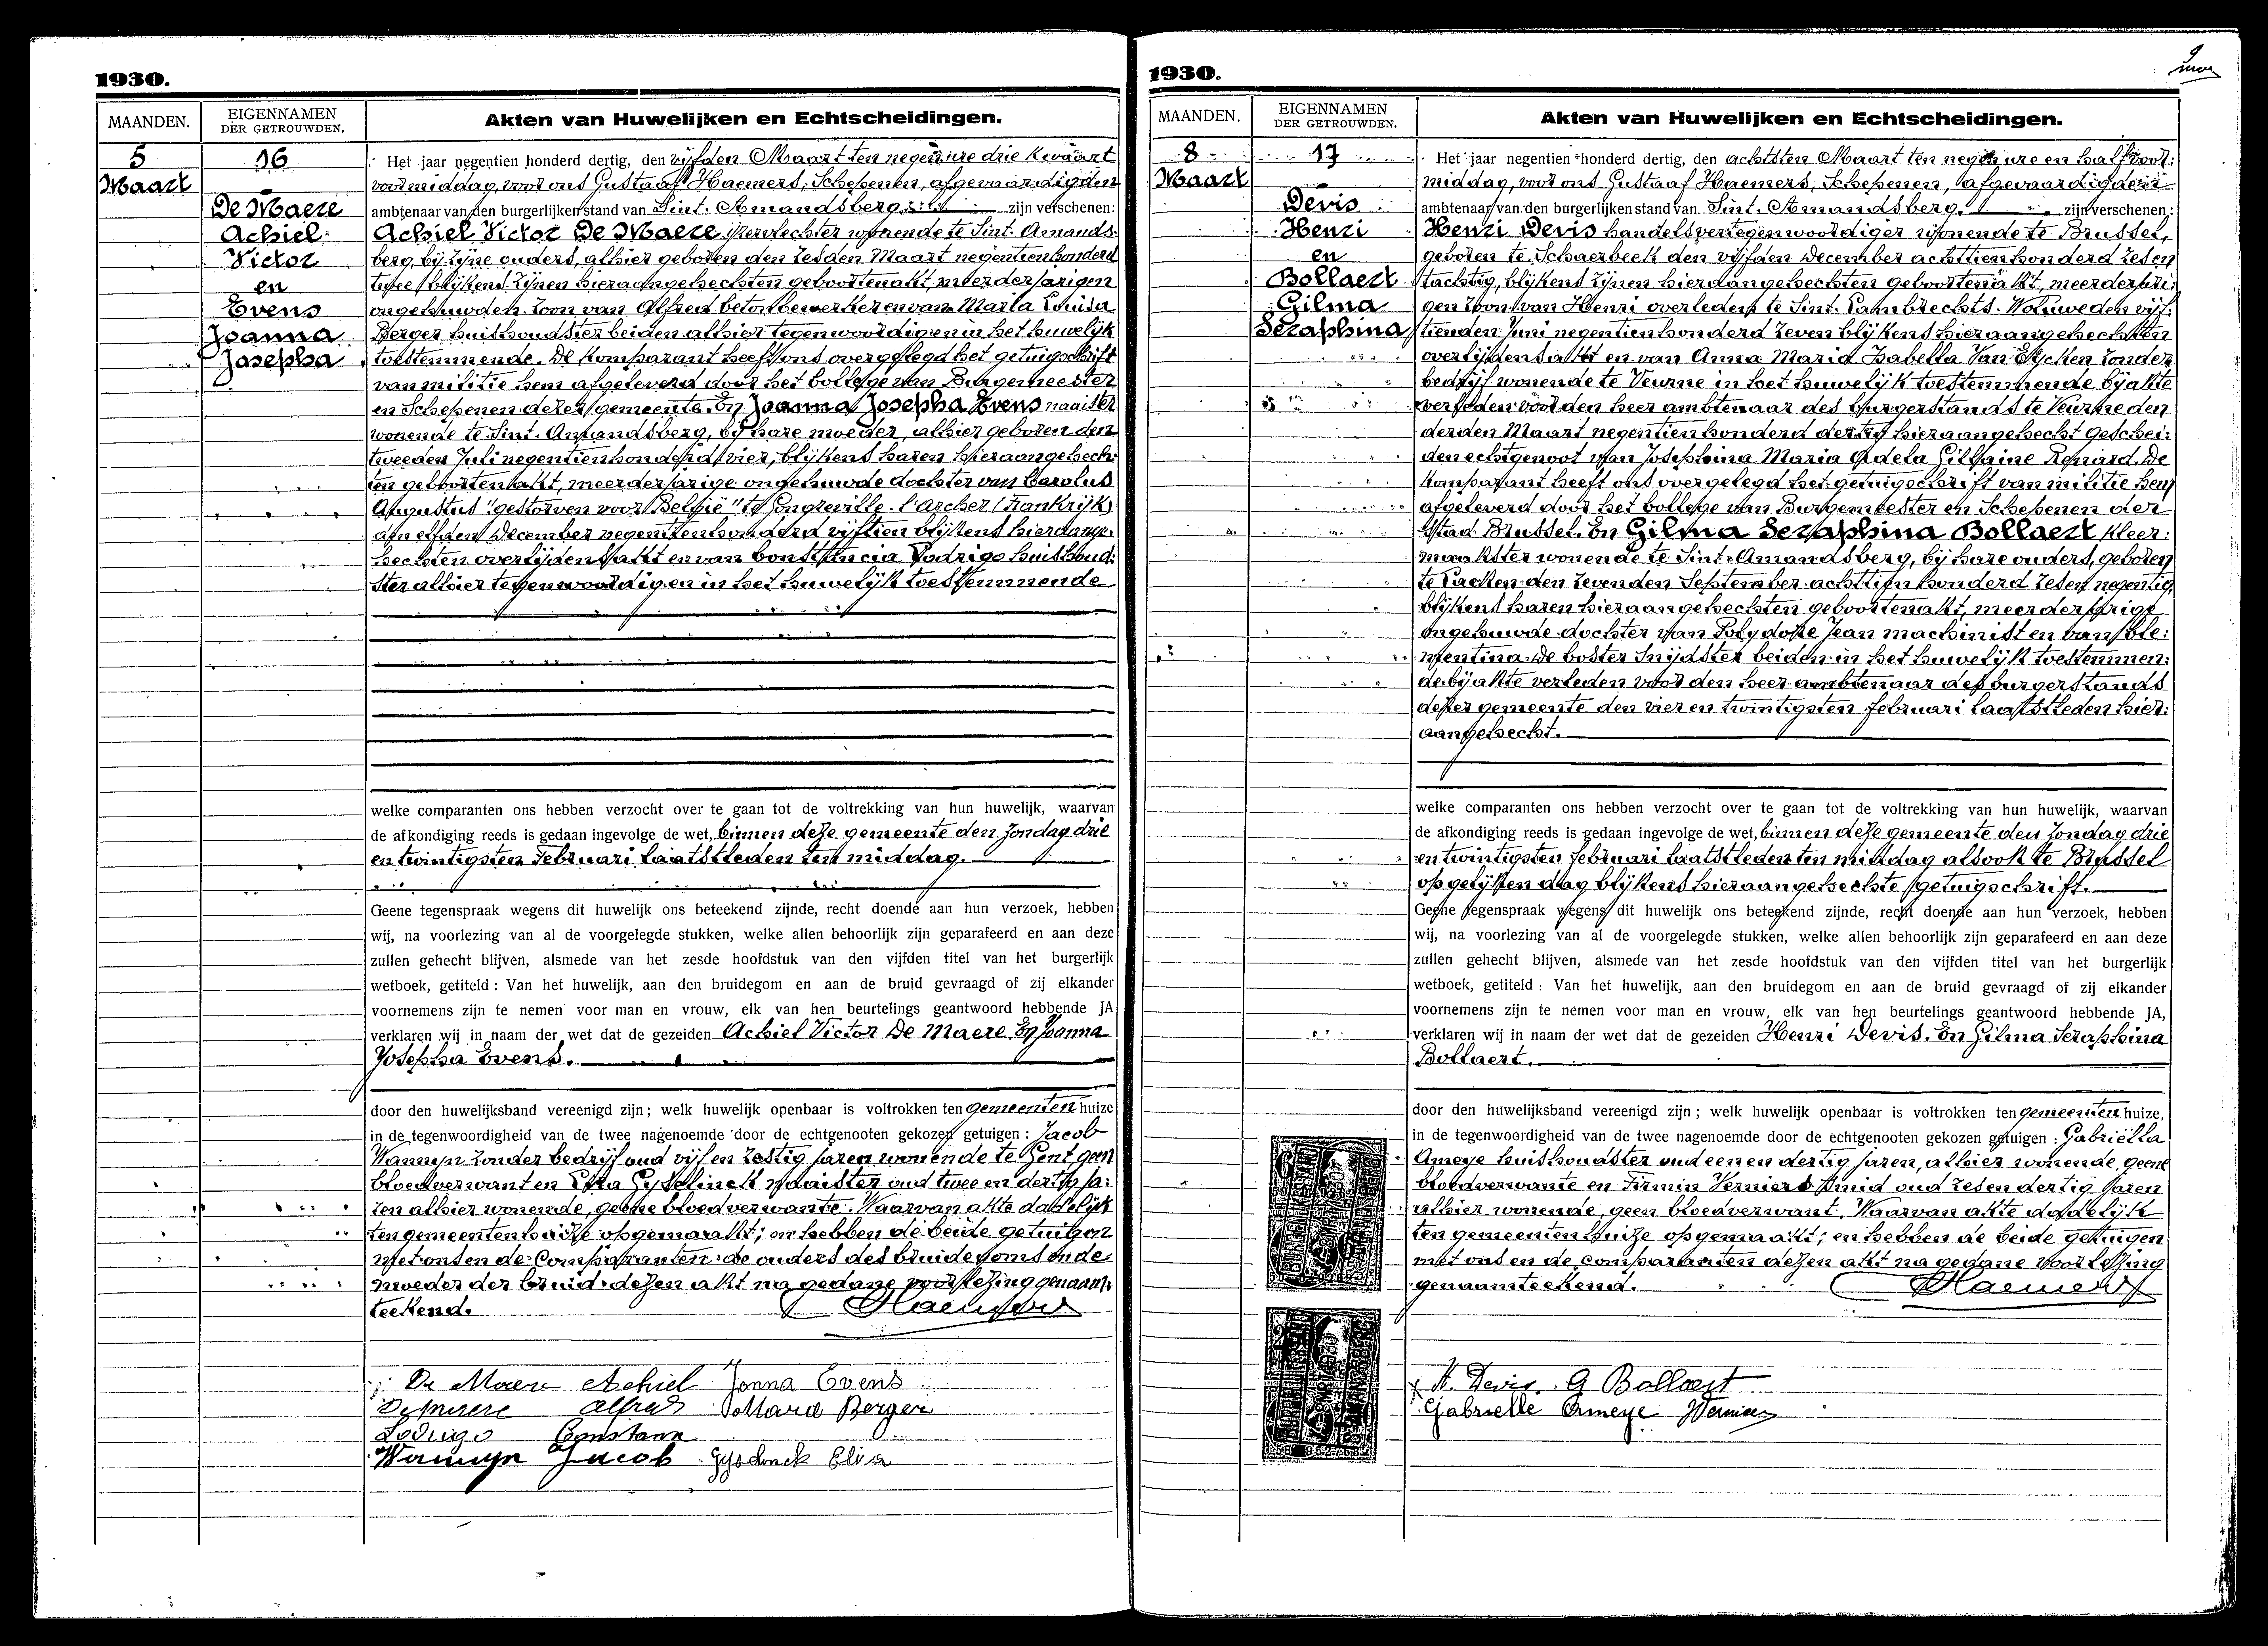 1930.
MAANDEN.
EIGENNAMEN
DER GETROUWDEN,
Akten van Huwelijken en Echtscheidingen.
5
Maart
16
De Maere
Achiel
Victor
en
Evens
Joanna
Josepha
Het jaar negentien honderd dertig, den vijfden Maart ten negen ure drie kwaart
voormiddag, voor ons Gustaaf Haemers, Schepenen, afgevaardigden
ambtenaar van den burgerlijken stand van Sint. Amandsberg. zijn verschenen:
Achiel Victor De Maere ijzervlechter wonende te Sint. Amands:
berg, bij zijne ouders, alhier geboren den zesden Maart negentienhonderd
twee, blijkens zijnen hieraangehechten geboortenakt, meerderjarigen
ongehuwden zoon van Alfred betonbewerker en van Maria Louisa
Berger huishoudster beiden alhier tegenwoordig en in het huwelijk
toestemmende. De komparant heeft ons overgelegd het getuigschrift
van militie hem afgeleverd door het college van Burgemeester
en Schepenen dezer gemeente. En Joanna Josepha Evens naaister
wonende te Sint. Amandsberg, bij hare moeder, alhier geboren den
tweeden Juli negentienhonderd vier, blijkens haren hieraangehech:
ten geboortenakt, meerderjarige ongehuwde dochter van Carolus
Augustus "gestorven voor België" te Congreville-l'archer (Frankrijk)
den elfden December negentienhonderd vijftien blijkens hieraange:
hechten overlijdensakt en van Constancia Lodrigo huishoud:
ster alhier tegenwoordig en in het huwelijk toestemmende
welke comparanten ons hebben verzocht over te gaan tot de voltrekking van hun huwelijk, waarvan
de afkondiging reeds is gedaan ingevolge de wet, binnen deze gemeente den Zondag drie
en twintigsten Februari laatstleden ten middag.
Geene tegenspraak wegens dit huwelijk ons beteekend zijnde, recht doende aan hun verzoek, hebben
wij, na voorlezing van al de voorgelegde stukken, welke allen behoorlijk zijn geparafeerd en aan deze
zullen gehecht blijven, alsmede van het zesde hoofdstuk van den vijfden titel van het burgerlijk
wetboek, getiteld : Van het huwelijk, aan den bruidegom en aan de bruid gevraagd of zij elkander
voornemens zijn te nemen voor man en vrouw, elk van hen beurtelings geantwoord hebbende JA
verklaren wij in naam der wet dat de gezeiden Achiel Victor De Maere En Joanna
Josepha Evens.
door den huwelijksband vereenigd zijn ; welk huwelijk openbaar is voltrokken ten gemeenten huize
in de tegenwoordigheid van de twee nagenoemde door de echtgenooten gekozen getuigen : Jacob
Wannyn zonder bedrijf oud vijf en zestig jaren wonende te Gent geen
bloedverwant en Elza Gyselinck naaister oud twee en dertig ja:
ren alhier wonende, geene bloedverwante. Waarvan akte dadelijk
ten gemeentenhuize opgemaakt; en hebben de beide getuigen
met ons en de Comparanten: de ouders des bruidegoms en de
moeder der bruid: dezen akt na gedane voorlezing genaam:
teekend.
Haemers
De Maere Achiel Jonna Evens
Demaere Alfred Maria Berger
Lodrigo Constann
Wannyn Jacob Gyselinck Elza
1930.
MAANDEN.
EIGENNAMEN
DER GETROUWDEN.
Akten van Huwelijken en Echtscheidingen.
8
Maart
17
Devis
Henri
en
Bollaert
Gilma
Seraphina
Het jaar negentien honderd dertig, den achtsten Maart ten negen ure en half voor:
middag, voor ons Gustaaf Haemers, Schepenen, afgevaardigden
ambtenaar van den burgerlijken stand van Sint. Amandsberg. zijn verschenen:
Henri Devis handelsvertegenwoordiger wonende te Brussel,
geboren te Schaerbeek den vijfden December achttienhonderd zes en
tachtig, blijkens zijnen hieraangehechten geboortenakt, meerderjari:
gen zoon van Henri overleden te Sint. Lambrechts. Woluwe den vijf:
tienden Juni negentienhonderd zeven blijkens hieraangehechten
overlijdensakt en van Anna Maria Isabella Van Eycken zonder
bedrijf wonende te Veurne in het huwelijk toestemmende bij akte
verleden voor den heer ambtenaar des burgerstands te Veurne den
derden Maart negentienhonderd dertig hieraangehecht geschei:
den echtgenoot van Josephina Maria Adela Gislaine Renard. De
komparant heeft ons overgelegd het getuigschrift van militie hem
afgeleverd door het college van Burgemeester en Schepenen der
stad Brussel. En Gilma Seraphina Bollaert kleer:
maakster wonende te Sint. Amandsberg, bij hare ouders, geboren
te Laeken den zevenden September achttienhonderd zes en negentig,
blijkens haren hieraangehechten geboortenakt, meerderjarige
ongehuwde dochter van Polydore Jean machinist en van Cle:
mentina De Coster snijdster beiden in het huwelijk toestemmen:
de bij akte verleden voor den heer ambtenaar des burgerstands
dezer gemeente den vier en twintigsten februari laatstleden hier:
aangehecht.
welke comparanten ons hebben verzocht over te gaan tot de voltrekking van hun huwelijk, waarvan
de afkondiging reeds is gedaan ingevolge de wet, binnen deze gemeente den Zondag drie
en twintigsten februari laatstleden ten middag alsook te Brussel
op gelijken dag blijkens hieraangehechte getuigschrift.
Geene tegenspraak wegens dit huwelijk ons beteekend zijnde, recht doende aan hun verzoek, hebben
wij, na voorlezing van al de voorgelegde stukken, welke allen behoorlijk zijn geparafeerd en aan deze
zullen gehecht blijven, alsmede van het zesde hoofdstuk van den vijfden titel van het burgerlijk
wetboek, getiteld : Van het huwelijk, aan den bruidegom en aan de bruid gevraagd of zij elkander
voornemens zijn te nemen voor man en vrouw, elk van hen beurtelings geantwoord hebbende JA,
verklaren wij in naam der wet dat de gezeiden Henri Devis. En Gilma Seraphina
Bollaert.
door den huwelijksband vereenigd zijn ; welk huwelijk openbaar is voltrokken ten gemeenten huize,
in de tegenwoordigheid van de twee nagenoemde door de echtgenooten gekozen getuigen : Gabriëlla
Ameye huishoudster oud een en dertig jaren, alhier wonende, geene
bloedverwante en Firmin Verniers smid oud zes en dertig jaren
alhier wonende, geen bloedverwant, Waarvan akte dadelijk
ten gemeenten huize opgemaakt; en hebben de beide getuigen
met ons en de comparanten dezen akt na gedane voorlezing
genaamteekend.
Haemers
H. Devis. G Bollaert
Gabrielle Ameye Verniers